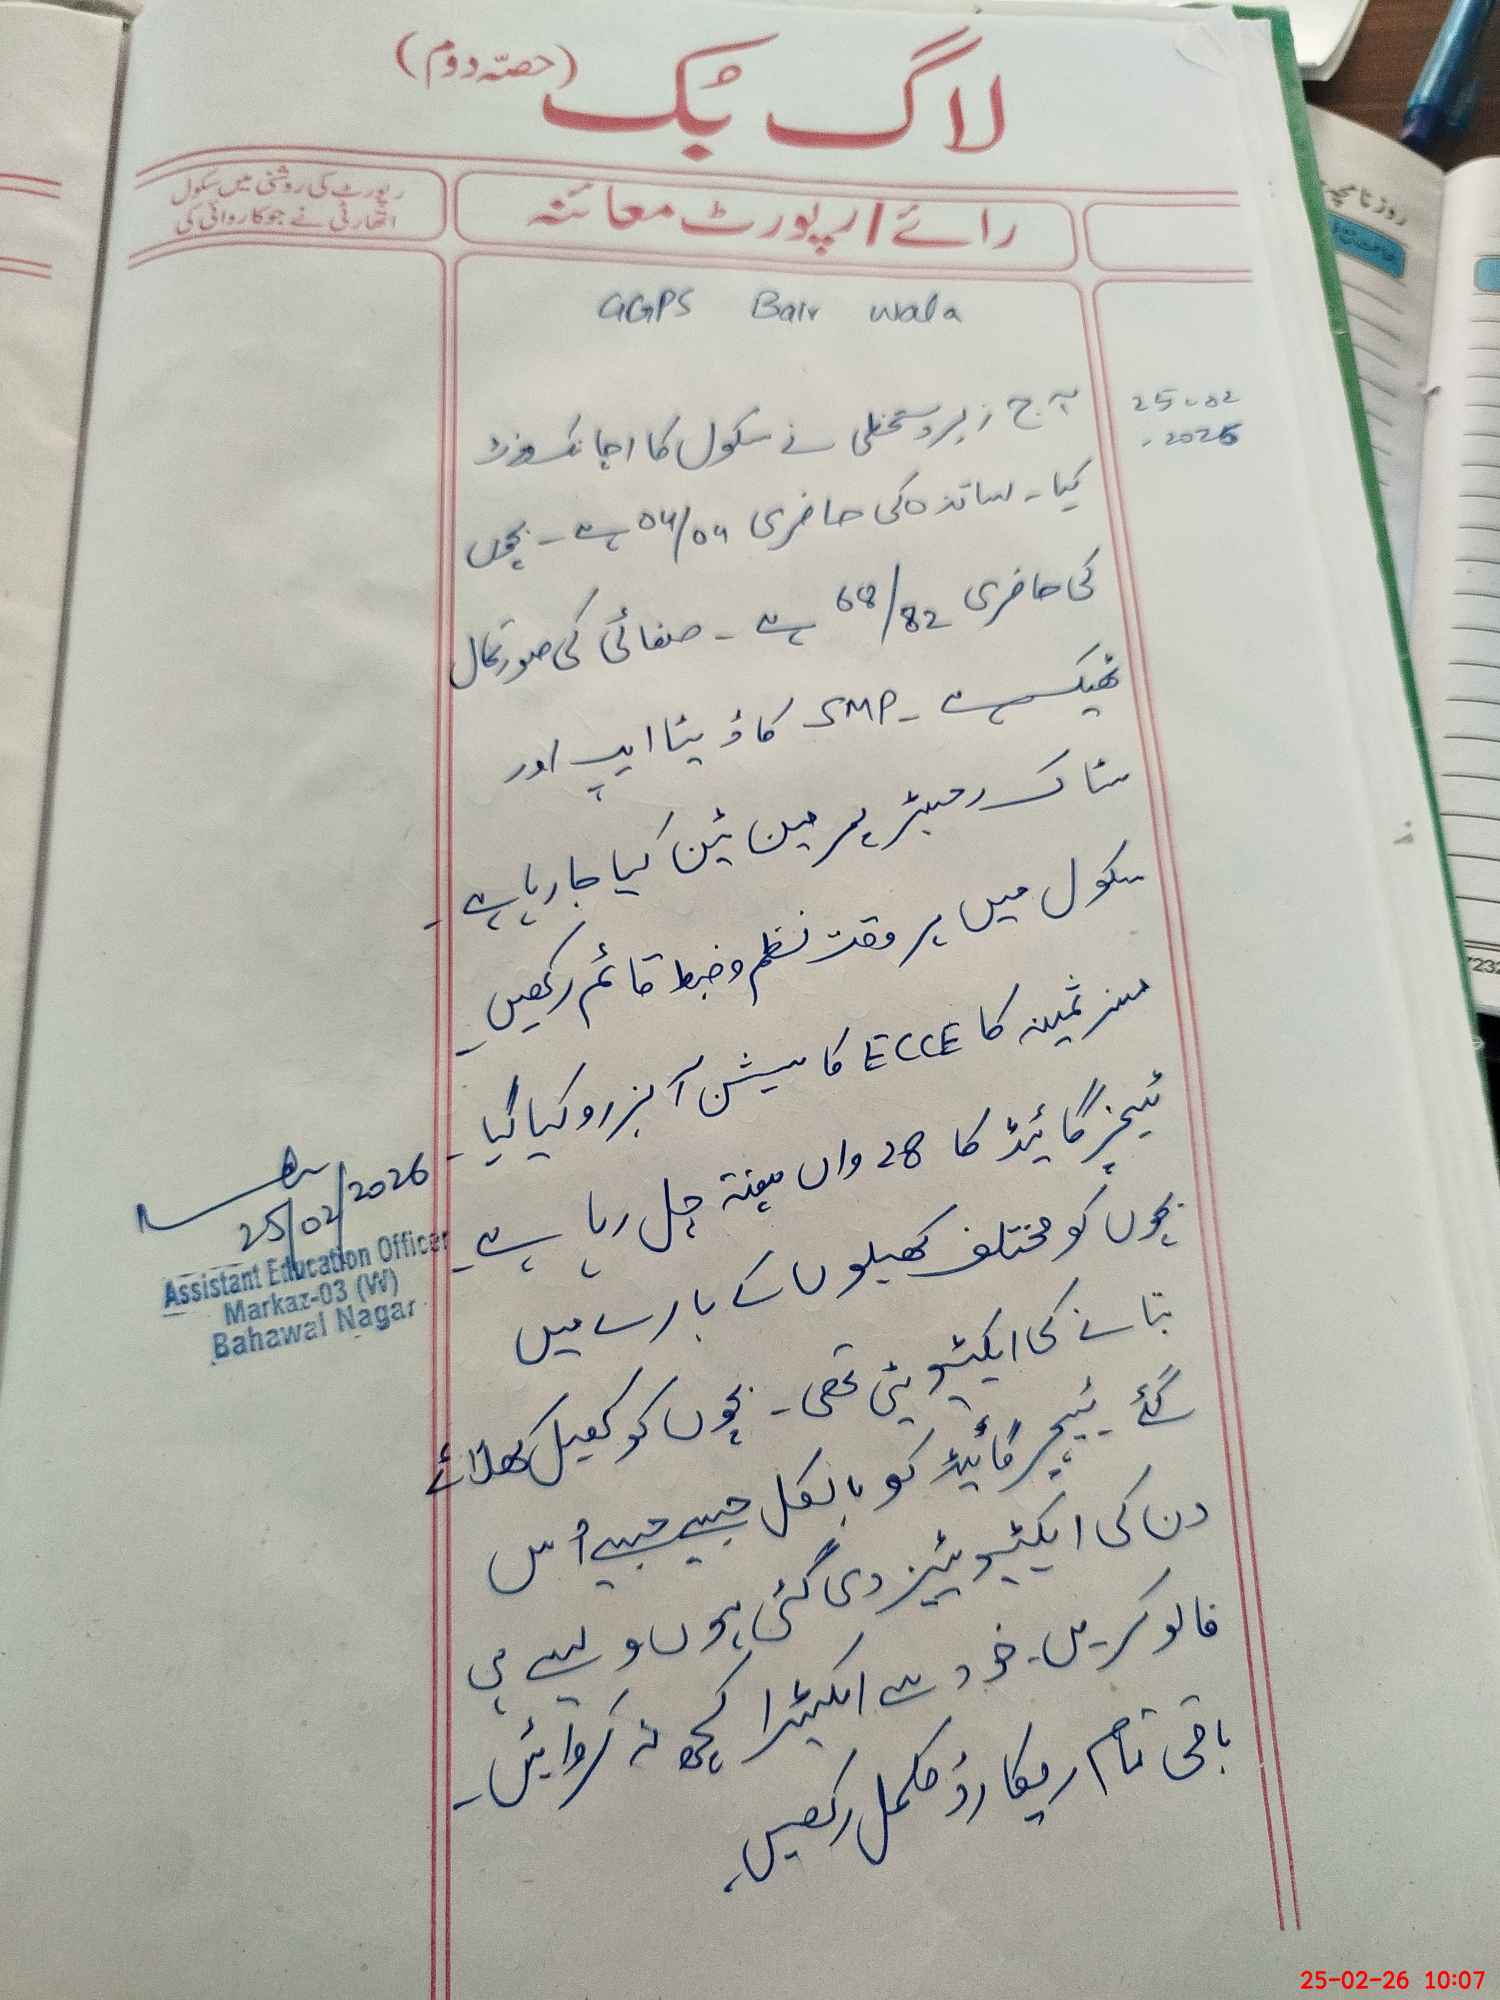 لاگ بک (حصہ دوم)
رائے / رپورٹ معائنہ
رپورٹ کی روشنی میں سکول
اتھارٹی نے جو کاروائی کی
GGPS Bair wala
25-02
-2026
آج زیر دستخطی نے سکول کا اچانک وزٹ
کیا۔ اساتذہ کی حاضری 04/04 ہے۔ بچوں
کی حاضری 68/82 ہے۔ صفائی کی صورتحال
ٹھیک ہے۔ SMP کا ڈیٹا ایپ اور
سٹاک رجسٹر پر مین ٹین کیا جا رہا ہے۔
سکول میں ہر وقت نظم و ضبط قائم رکھیں۔
مسز ثمینہ کا ECCE کا سیشن آبزرو کیا گیا۔
ٹیچرز گائیڈ کا 28 واں ہفتہ چل رہا ہے۔
بچوں کو مختلف کھیلوں کے بارے میں
بتانے کی ایکٹیویٹی تھی۔ بچوں کو کھیل کھلائے
گئے۔ ٹیچر گائیڈ کو بالکل جیسے جیسے اُس
دن کی ایکٹیویٹیز دی گئی ہوں ویسے ہی
فالو کریں۔ خود سے ایکسٹرا کچھ نہ کروائیں۔
باقی تمام ریکارڈ مکمل رکھیں۔
25/02/2026
Assistant Education Officer
Markaz-03 (W)
Bahawal Nagar
روزنامچہ
7232
25-02-26 10:07